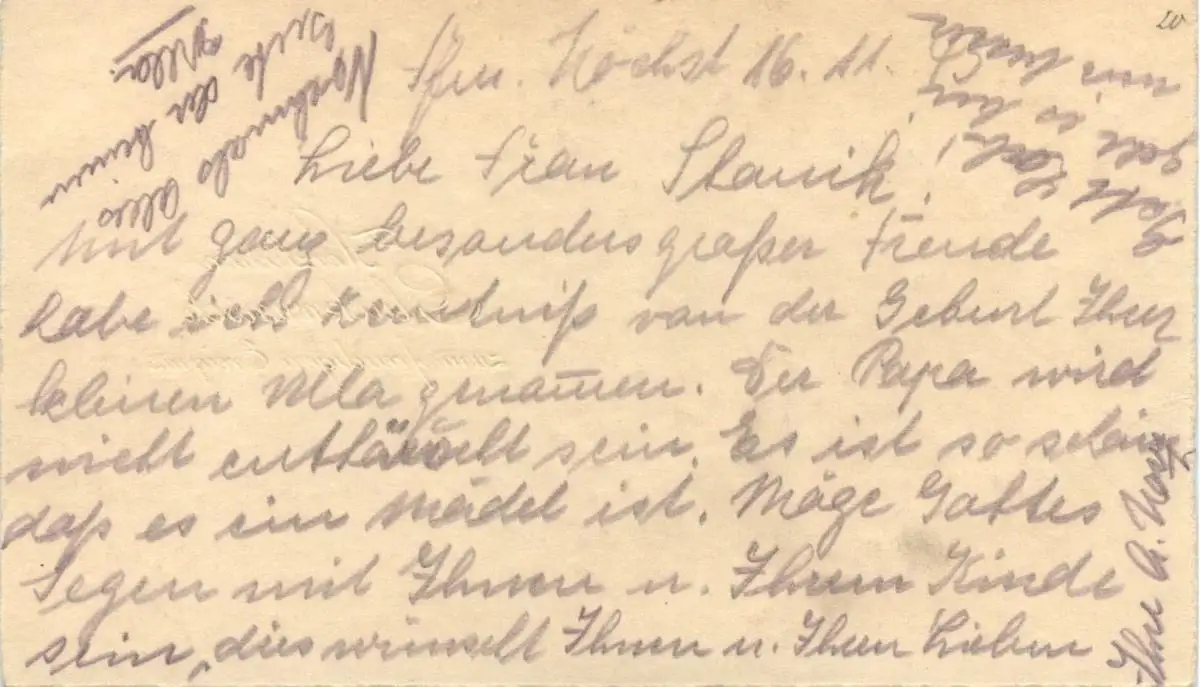 20
Ffm. Höchst 16. 11.
Liebe Frau Stanik!
Mit ganz besonders großer Freude
habe ich Kenntniß von der Geburt Ihrer
kleinen Ulla genommen. Der Papa wird
nicht enttäuscht sein. Es ist so schön
daß es ein Mädel ist. Möge Gottes
Segen mit Ihnen u. Ihrem Kinde
sein, dies wünscht Ihnen u. Ihren Lieben
Ihre A.
Nochmals alles
Gute der kleinen
Ulla.